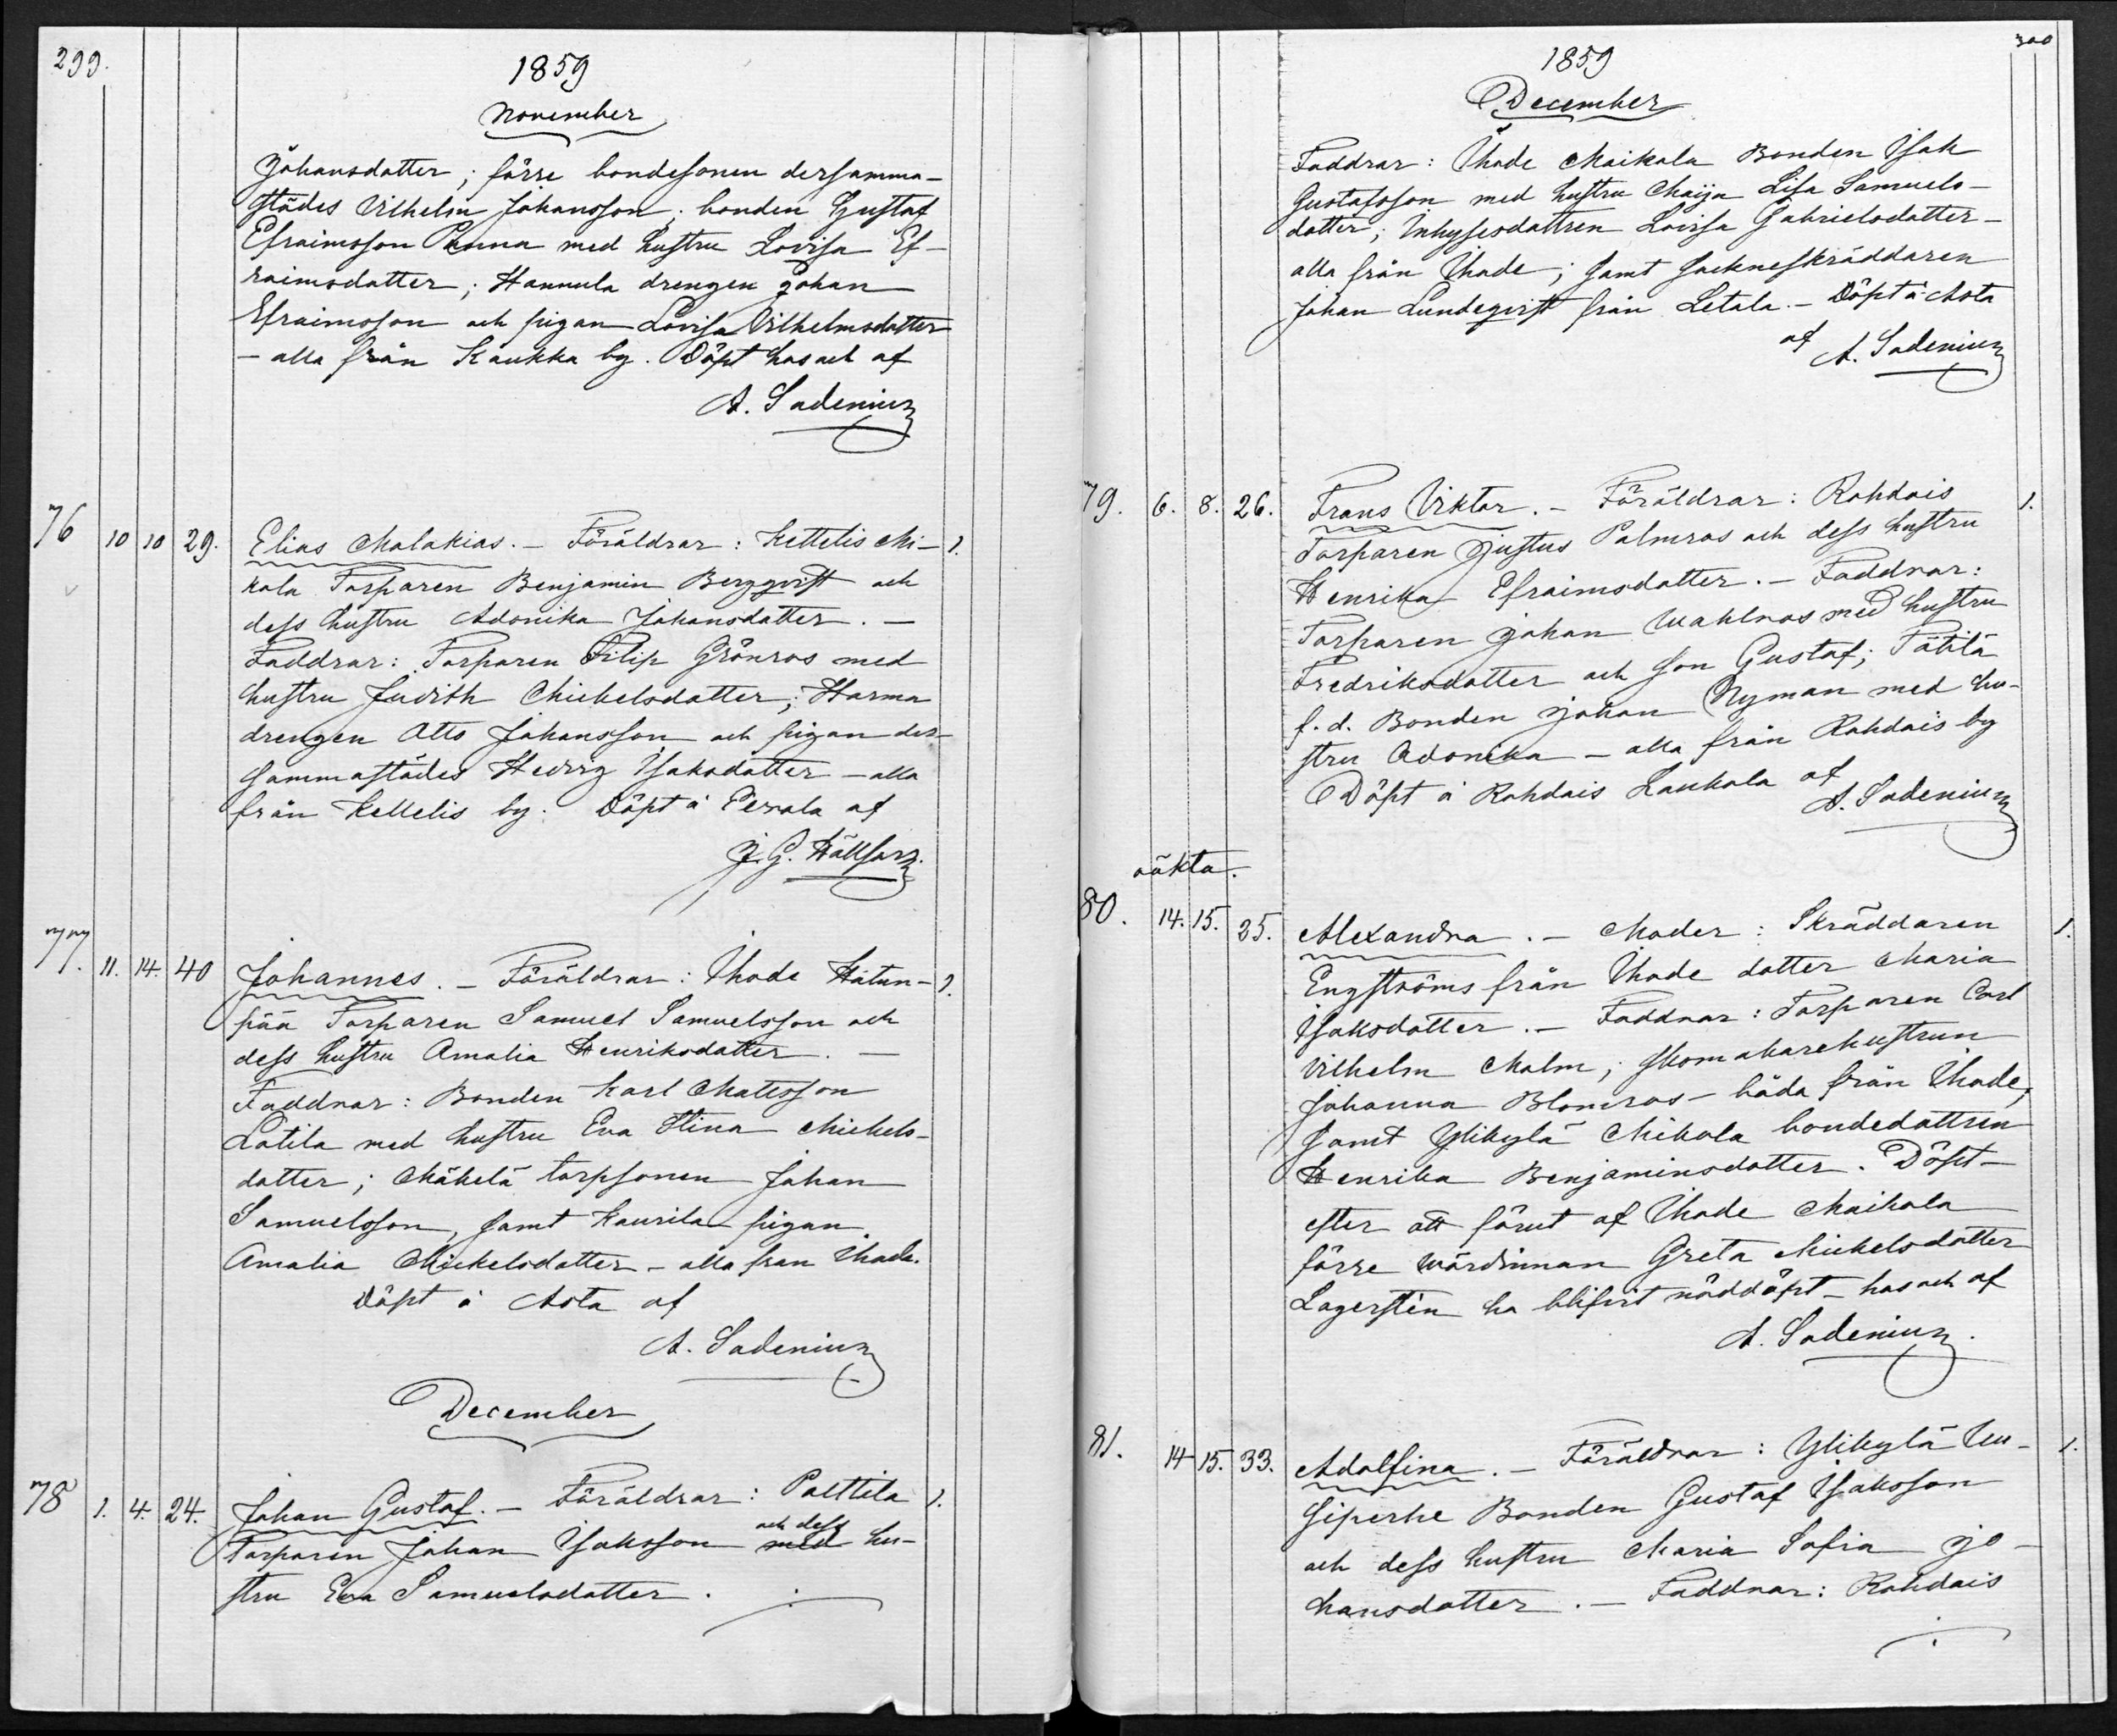 299.
1859
November
Johansdotter; förre bondesonen dersamma-
städes Vilhelm Johansson. bonden Gustaf
Efraimsson Panna med hustru Lovisa Ef-
raimsdotter; Hannula drengen Johan
Efraimsson och pigan Lovisa Vilhelmsdotter
– alla från Kaukka by. Döpt hos och af
A. Sadenius
76 10 10 29. Elias Malakias. – Föräldrar: Kettelis Mi- 1.
kola Torparen Benjamin Bergqvist och
dess hustru Adonika Johansdotter. –
Faddrar: Torparen Filip Grönros med
hustru Judith Michelsdotter; Harma
drengen Otto Johansson och pigan der-
sammastädes Hedvig Isaksdotter – alla
från Kettelis by. Döpt å Perala af
J. G. Hällfors.
77. 11. 14. 40 Johannes. – Föräldrar: Ihode Hatun- 1.
pää Torparen Samuel Samuelsson och
dess hustru Amalia Henriksdotter. –
Faddrar: Bonden Karl Matsson
Lätila med hustru Eva Stina Michels-
dotter; Mäkelä torpsonen Johan
Samuelsson, samt Kaurila pigan
Amalia Mickelsdotter – alla fran Ihode.
Döpt å Aota af
A. Sadenius
December
78 1. 4. 24. Johan Gustaf. – Föräldrar: Palttila 1.
och dess
Torparen Johan Isaksson med hu-
stru Eva Samuelsdotter.
300
1859
December
Faddrar: Ihode Maikola Bonden Isak
Gustafsson med hustru Maija Lisa Samuels-
dotter; Inhysesdottren Lovisa Gabrielsdotter –
alla från Ihode; samt sockneskräddaren
Johan Lundeqvist från Letala. – Döpt å Aota
af A. Sadenius
79. 6. 8. 26. Frans Viktor. – Föräldrar: Rohdais 1.
Torparen Justus Palmros och dess hustru
Henrika Efraimsdotter. – Faddrar:
Torparen Johan Wahlros med hustru
Fredriksdotter och son Gustaf; Tätilä
f. d. Bonden Johan Nyman med hu-
stru Adonika – alla från Rohdais by
Döpt å Rohdais Laukola af
A. Sadenius
oäkta.
80. 14. 15. 25. Alexandra. – Moder: Skräddaren 1.
Engströms från Ihode dotter Maria
Isaksdotter. – Faddrar: Torparen Carl
Vilhelm Malm; skomakarehustrun
Johanna Blomros – båda från Ihode;
samt Ylikylä Mikola bondedottren
Henrika Benjaminsdotter. Döpt –
efter att förut af Ihode Maikola
förre wärdinnan Greta Mickelsdotter
Lagerstén ha blifvit nöddöpt – hos och af
A. Sadenius.
81. 14 15. 33. Adolfina. – Föräldrar: Ylikylä Uu- 1.
siperhe Bonden Gustaf Isaksson
och dess hustru Maria Sofia Jo-
hansdotter. – Faddrar: Rohdais